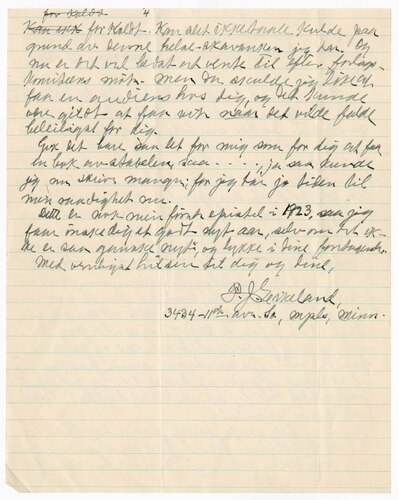 for koldt 4
Kan ikke for koldt. Kan slet ikke taale kulde paa
grund av denne helse-skavanken jeg har. Og
nu er det vel bedst at vente til efter forlags-
komiteens møte. Men da skulde jeg like at
faa en audiens hos dig, og det kunde
være gildt at faa vite naar det vilde falde
beleiligst for dig.
Gik det bare saa let for mig som for dig at faa
en bok av stabelen, saa . . . . , ja saa kunde
jeg nu skrive mange; for jeg har jo tiden til
min raadighet nu.
Dette er nok min første epistel i 1923, saa jeg
faar ønske dig et godt nyt aar, selv om det ik-
ke er saa ganske nyt, og lykke i dine foretagender.
Med venligst hilsen til dig og dine,
P. J.
3434-11th ave. So., Mpls, Minn.